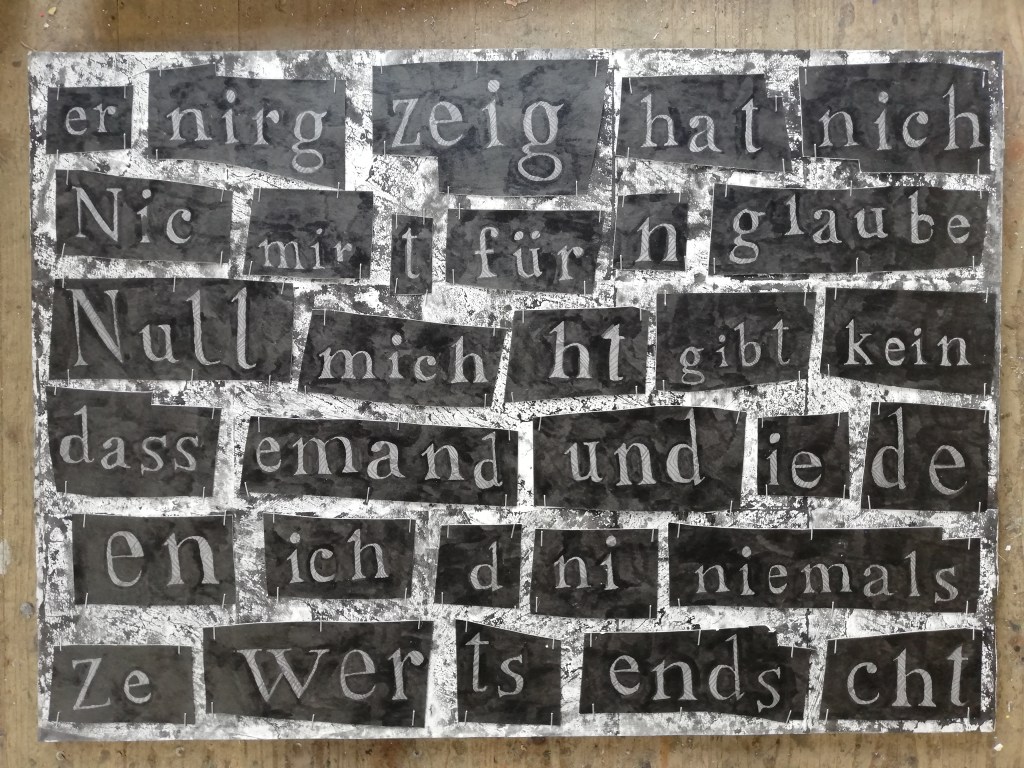 er nirg zeig hat nich
Nic mir t für n glaube
Null mich ht gibt kein
dass emand und ie de
en ich d ni niemals
Ze wer ts ends cht